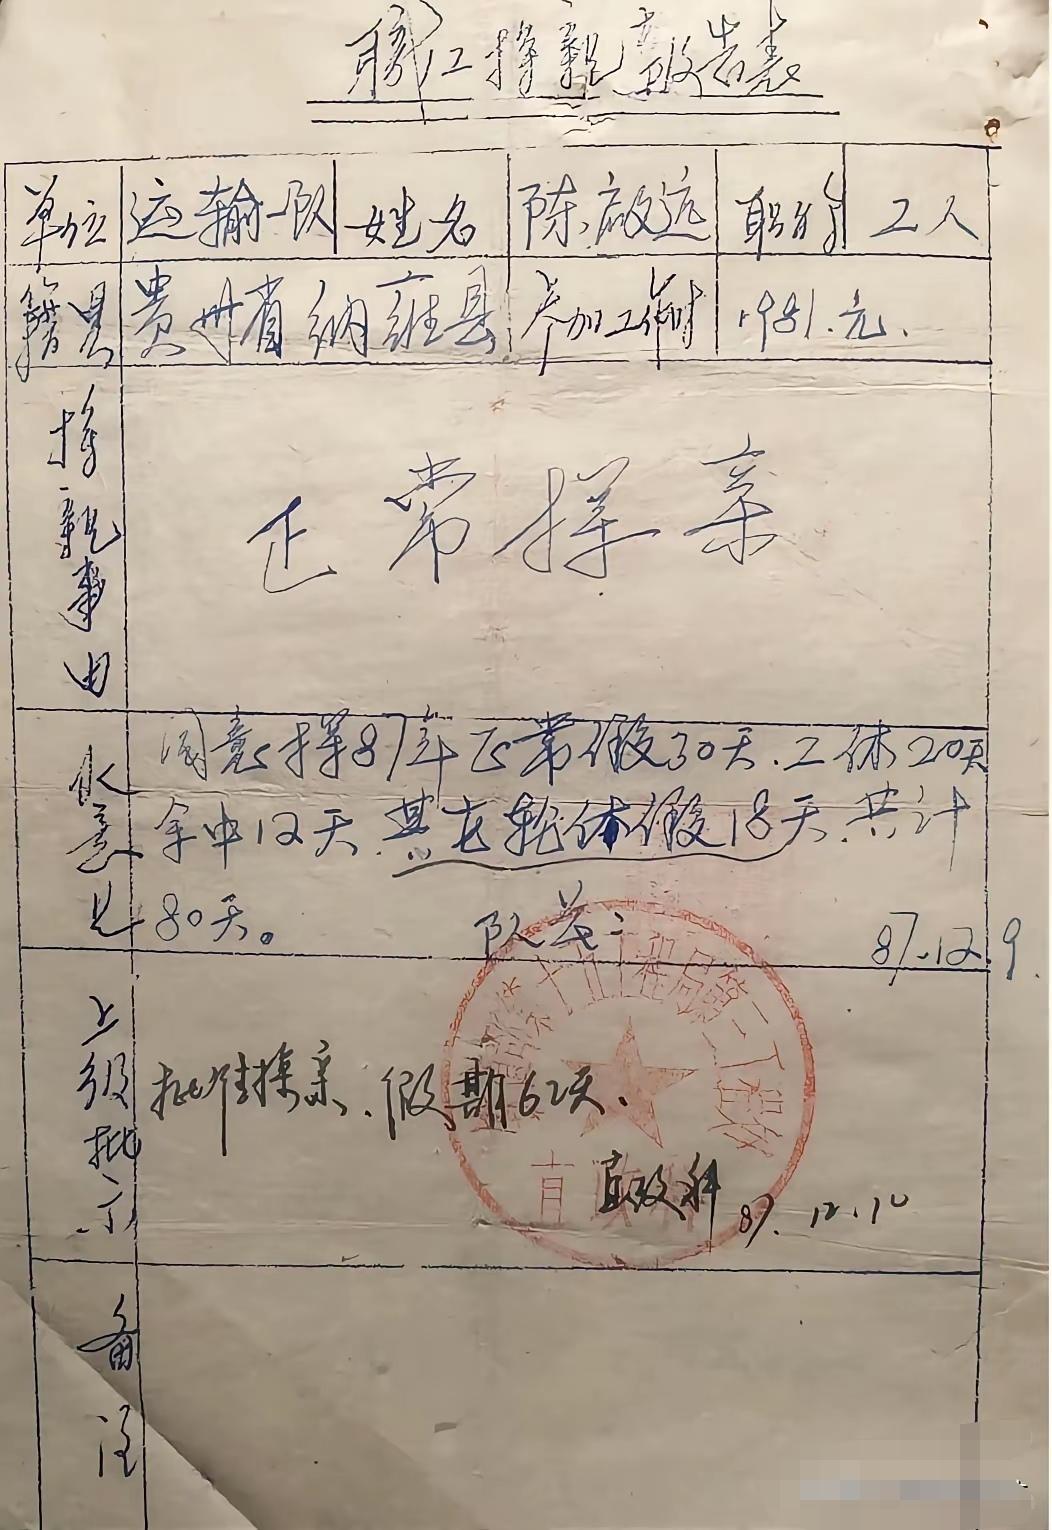 职工探亲报告表
单位 运输一队 姓名 陈启远 职务 工人
籍贯 贵州省纳雍县 参加工作时 1981.元.
探亲事由 正常探亲
队意见 同意探87年正常假30天.工休20天
余中12天 其它轮休假18天 共计
80天。 队长: 87.12.9.
上级批示 批准探亲.假期62天.
直政科 87.12.10
备注